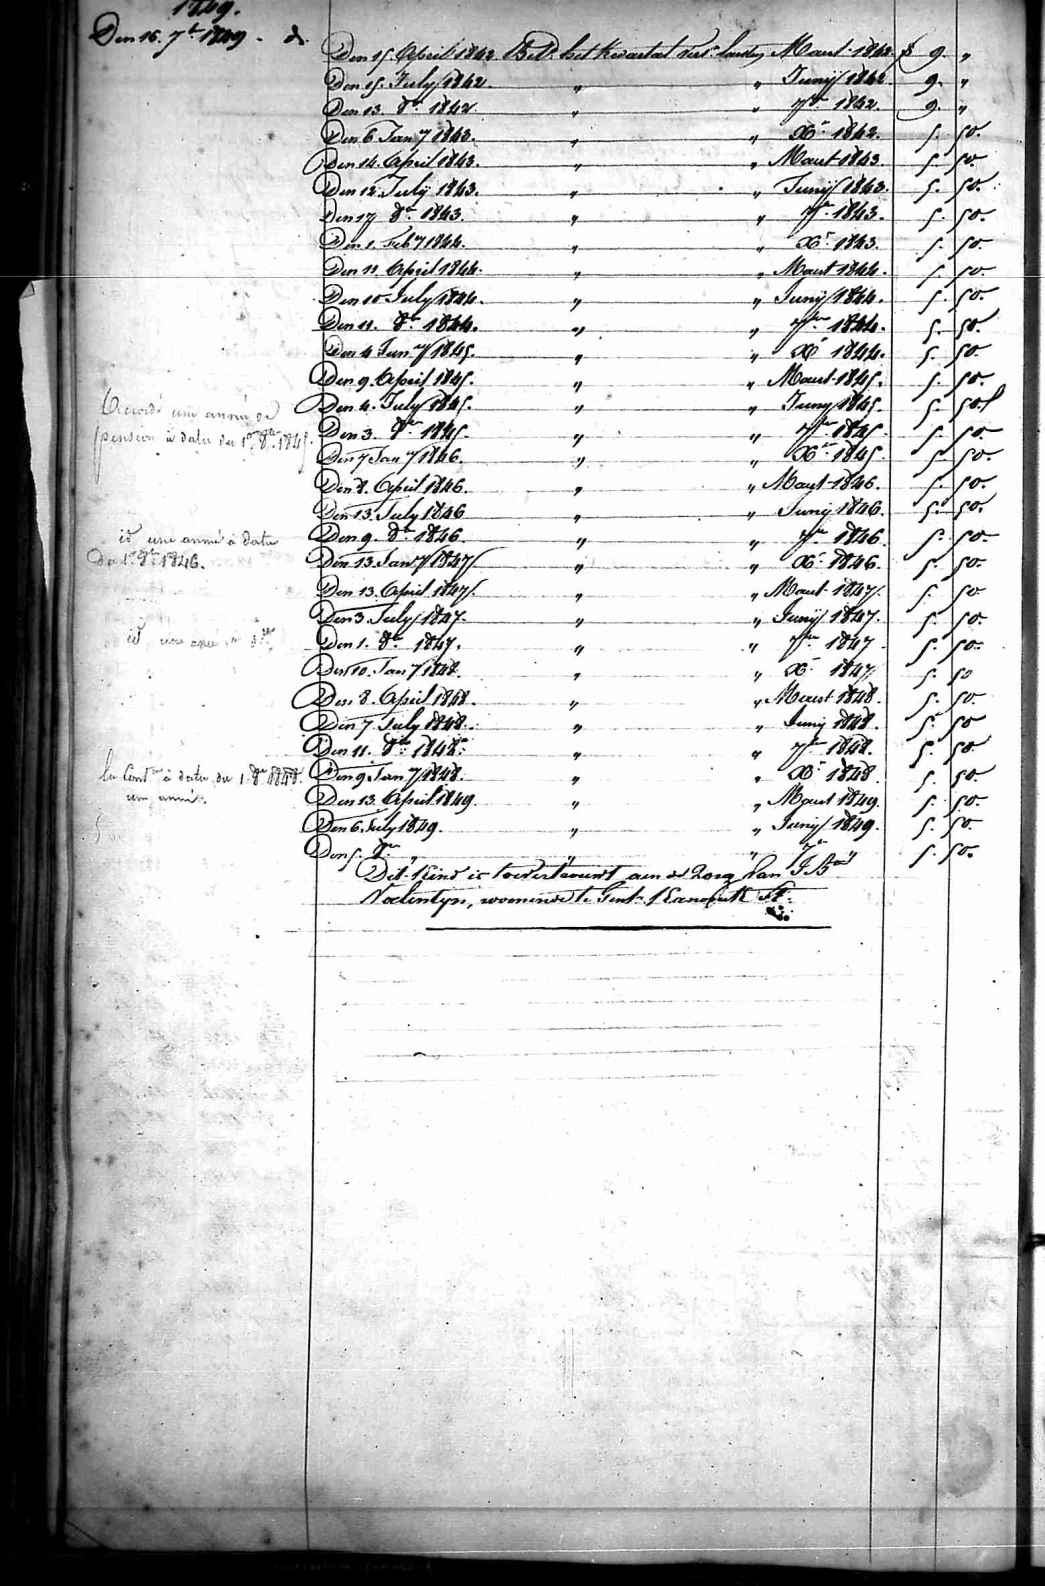 1849.
Den 16. 7bre 1849. - d.
Den 15 April 1842 Bet. het Kwartaal vers. Maart 1842 9. "
Den 15 July 1842. " " Junij 1842 9. "
Den 13. 8bre 1842 " " 7bre 1842. 9. "
Den 6 Jany 1843. " " Xbre 1842. 5. 50.
Den 14. April 1843. " " Maart 1843. 5. 50.
Den 12. July 1843. " " Junij 1843. 5. 50.
Den 17 8bre 1843. " " 7bre 1843. 5. 50.
Den 1. Feby 1844. " " Xbre 1843. 5. 50.
Den 11. April 1844. " " Maart 1844. 5. 50.
Den 10 July 1844. " " Junij 1844. 5. 50.
Den 11. 8bre 1844. " " 7bre 1844. 5. 50.
Den 4 Jany 1845. " " Xbre 1844. 5. 50.
Den 9. April 1845. " " Maart 1845. 5. 50.
Den 4. July 1845. " " Junij 1845. 5. 50.
Accordé une année de
pension à dater du 1er 8bre 1845.
Den 3. 8bre 1845. " " 7bre 1845. 5. 50.
Den 7 Jany 1846. " " Xbre 1845. 5. 50.
Den 8. April 1846. " " Maart 1846. 5. 50.
Den 13. July 1846 " " Junij 1846. 5. 50.
id une année à dater
du 1er 8bre 1846.
Den 9. 8bre 1846. " " 7bre 1846. 5. 50.
Den 13. Jany 1847. " " Xbre 1846. 5. 50.
Den 13. April 1847. " " Maart 1847. 5. 50
Den 3. July 1847. " " Junij 1847. 5. 50.
id une
Den 1. 8bre 1847. " " 7bre 1847 5. 50.
Den 10. Jany 1848. " " Xbre 1847. 5. 50
Den 8. April 1848. " " Maart 1848. 5. 50.
Den 7. July 1848. " " Junij 1848. 5. 50
Den 11. 8bre 1848. " " 7bre 1848. 5. 50
à dater du 1. 8bre 1848.
une année.
Den 9 Jany 1848. " " Xbre 1848. 5. 50.
Den 13. April 1849. " " Maart 1849. 5. 50.
Den 6. July 1849. " " Junij 1849. 5. 50.
Den 5. 8bre " " " 7bre " 5. 50.
Dit Kind is toevertrouwt aen de Zorg van J. Bte
Valentyn, woonende te Gent,